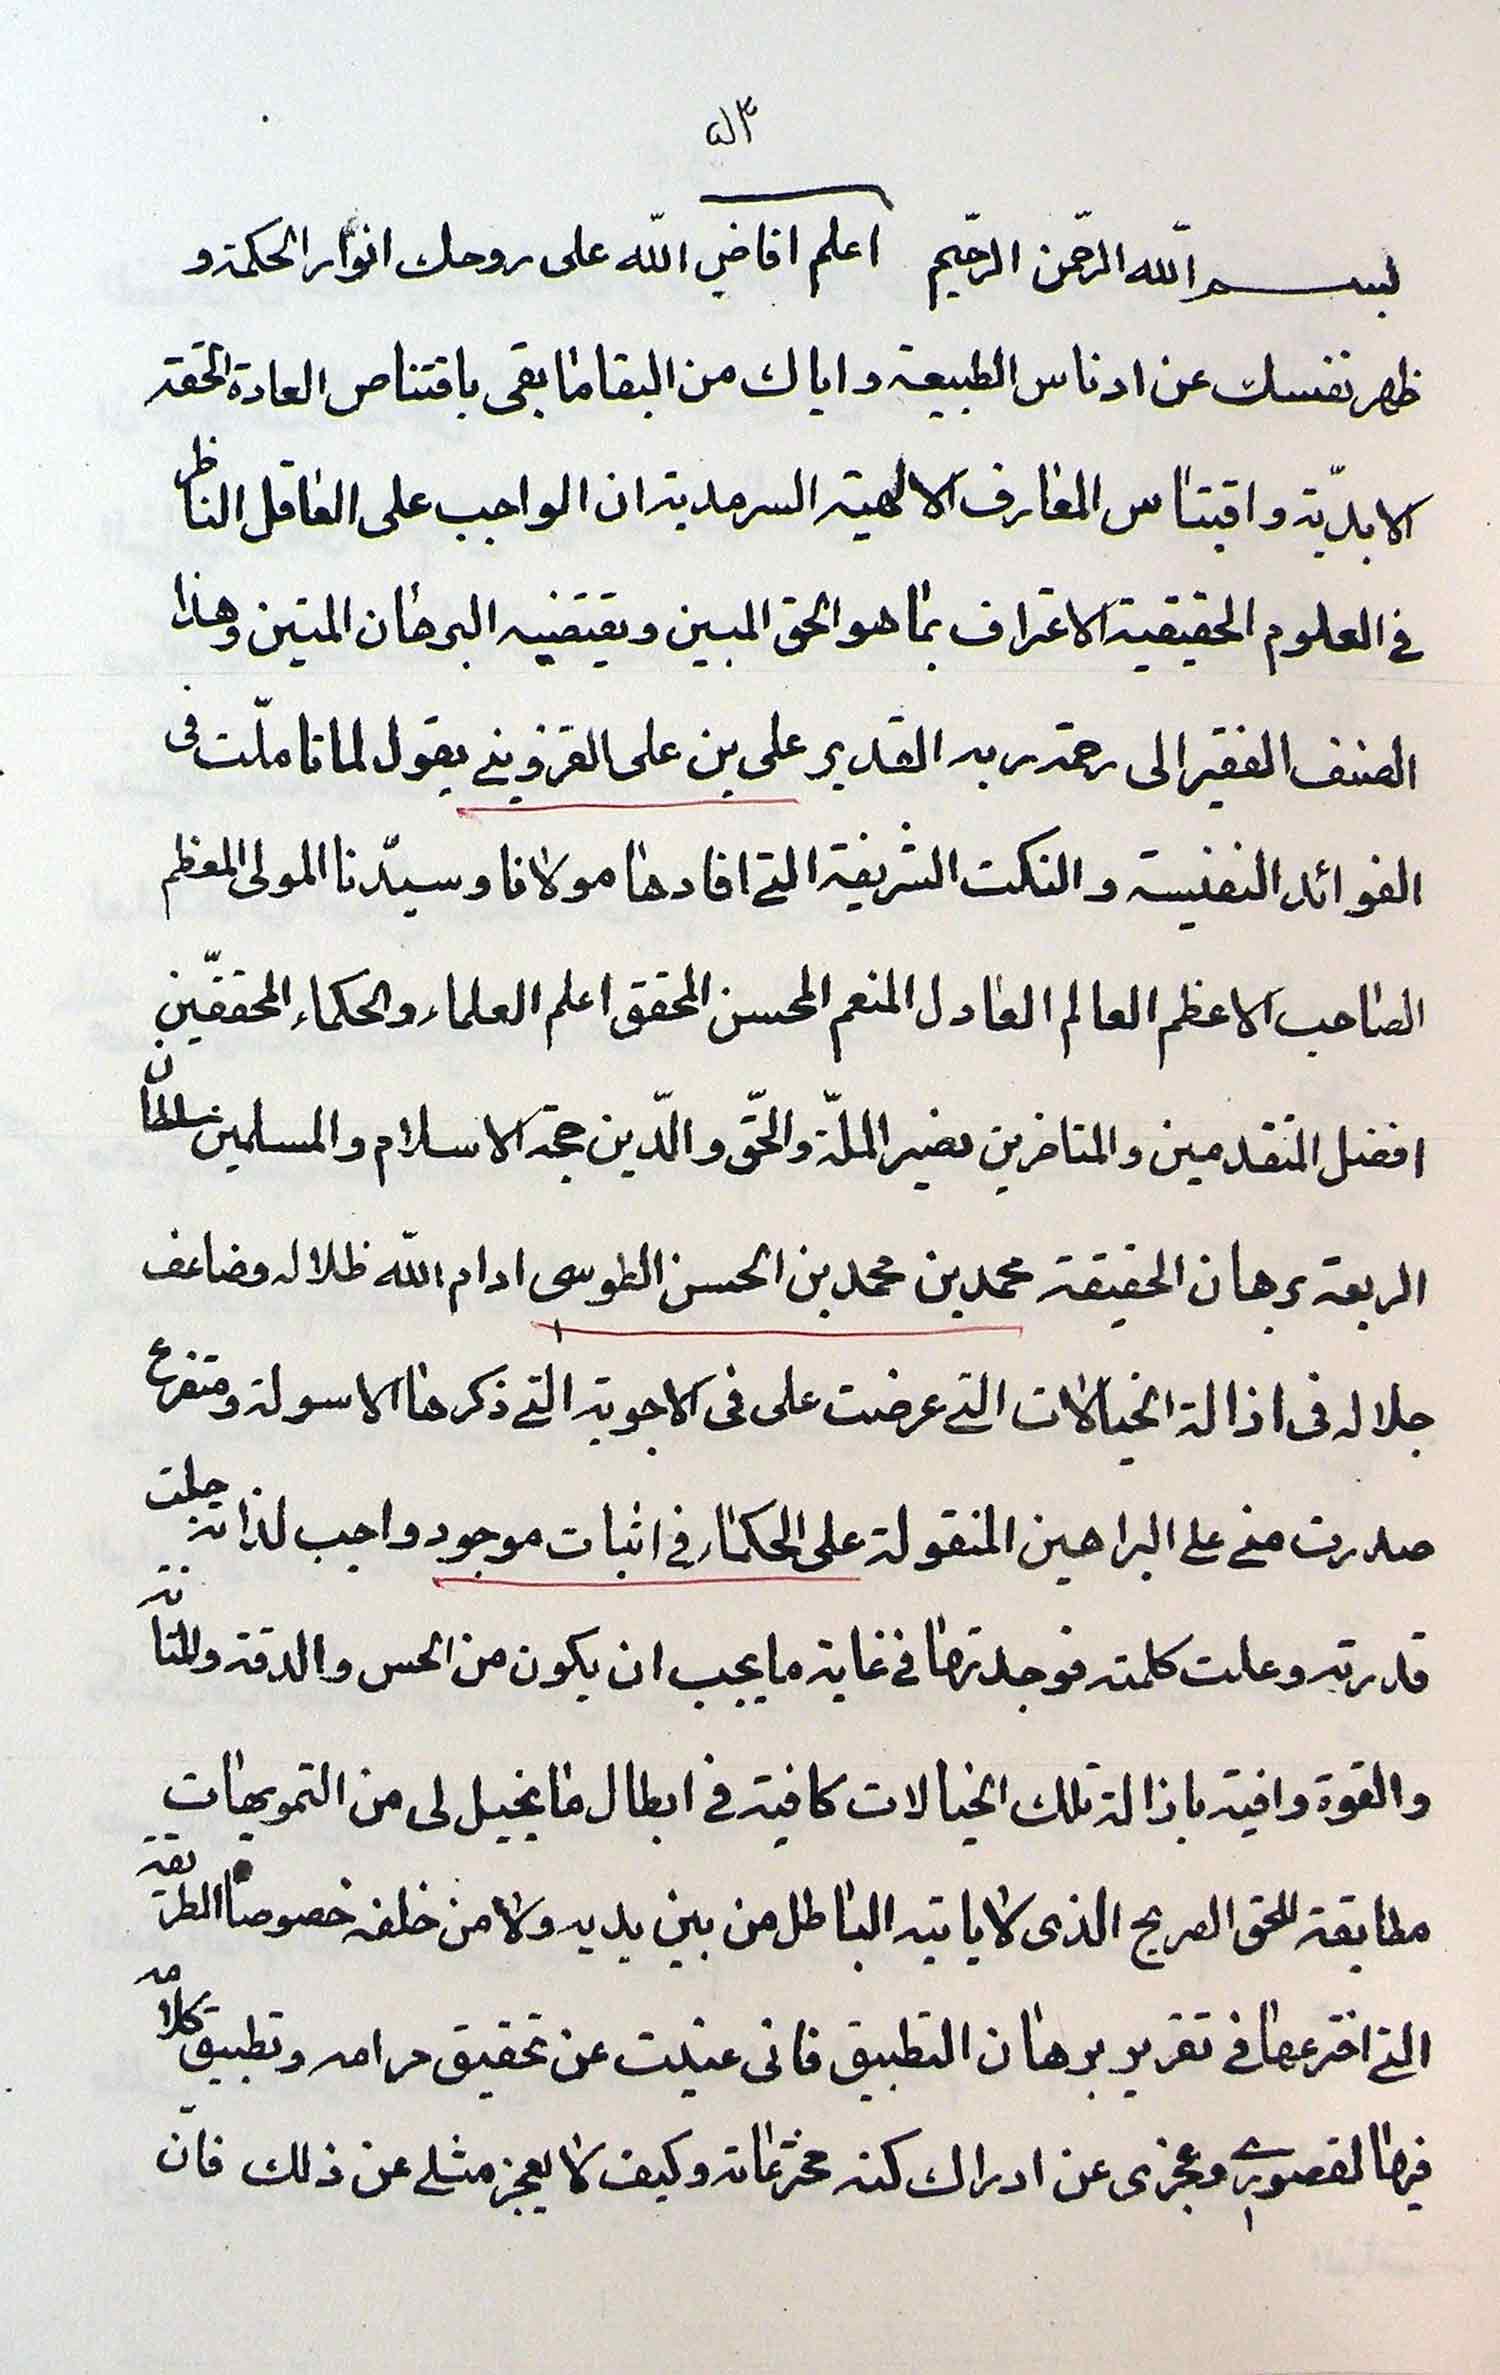 ۵۳
بسم الله الرحمن الرحیم اعلم افاض الله علی روحك انوار الحكمة و
طهر نفسك عن ادناس الطبیعة و اياك من البقا ما بقی باقتناص العادة الحقة
الابدیّة و اقتباس المعارف الالهیة السرمدیة ان الواجب علی العاقل الناظر
فی العلوم الحقیقیة الاعتراف بما هو الحق المبین و یقتضیه البرهان المتین و هذا
الضنف الفقیر الی رحمة ربه القدیر علی بن علی القزوینی یقول لما تأملّت فی
الفوائد النفیسة و النكت الشریفة التی افادها مولانا و سیّدنا المولی المعظم
الصاحب الاعظم العالم العادل المنعم المحسن المحقق اعلم العلماء و الحكماء المحققّین
افضل المتقدمین و المتاخرین نصیر الملّة و الحّق و الدّین حجة الاسلام و المسلمین سلطان
الربعة برهان الحقیقة محمد بن محمد بن الحسن الطوسی ادام الله ظلاله و ضاعف
جلاله فی اذالة الخیالات التی عرضت علی فی الاجوبة التی ذكرها الاسولة و متفرع
صدرت منی علی البراهین المنقولة علی الحكماء فی اثبات موجود واجب لذاته جلت
قدرته و علت كلمته فوجدتها فی غایة ما یجب ان یكون من الحس و الدقة والمتانة
و القوة وافیة باذالة تلك الخیالات كافیة فی ابطال ما یخیل لی من التمویهات
مطابقة للحق الصریح الذی لا یاتیه الباطل من بین یدیه و لا من خلفه خصوصاً الطریقة
التی اخترعها فی تقریر برهان التطبیق فانی عییت عن تحقیق مرامه و تطبیق كلامه
فیها لقصوری و عجزی عن ادراك كنه مخترعاته و كیف لا یعجز مثلی عن ذلك فانّ